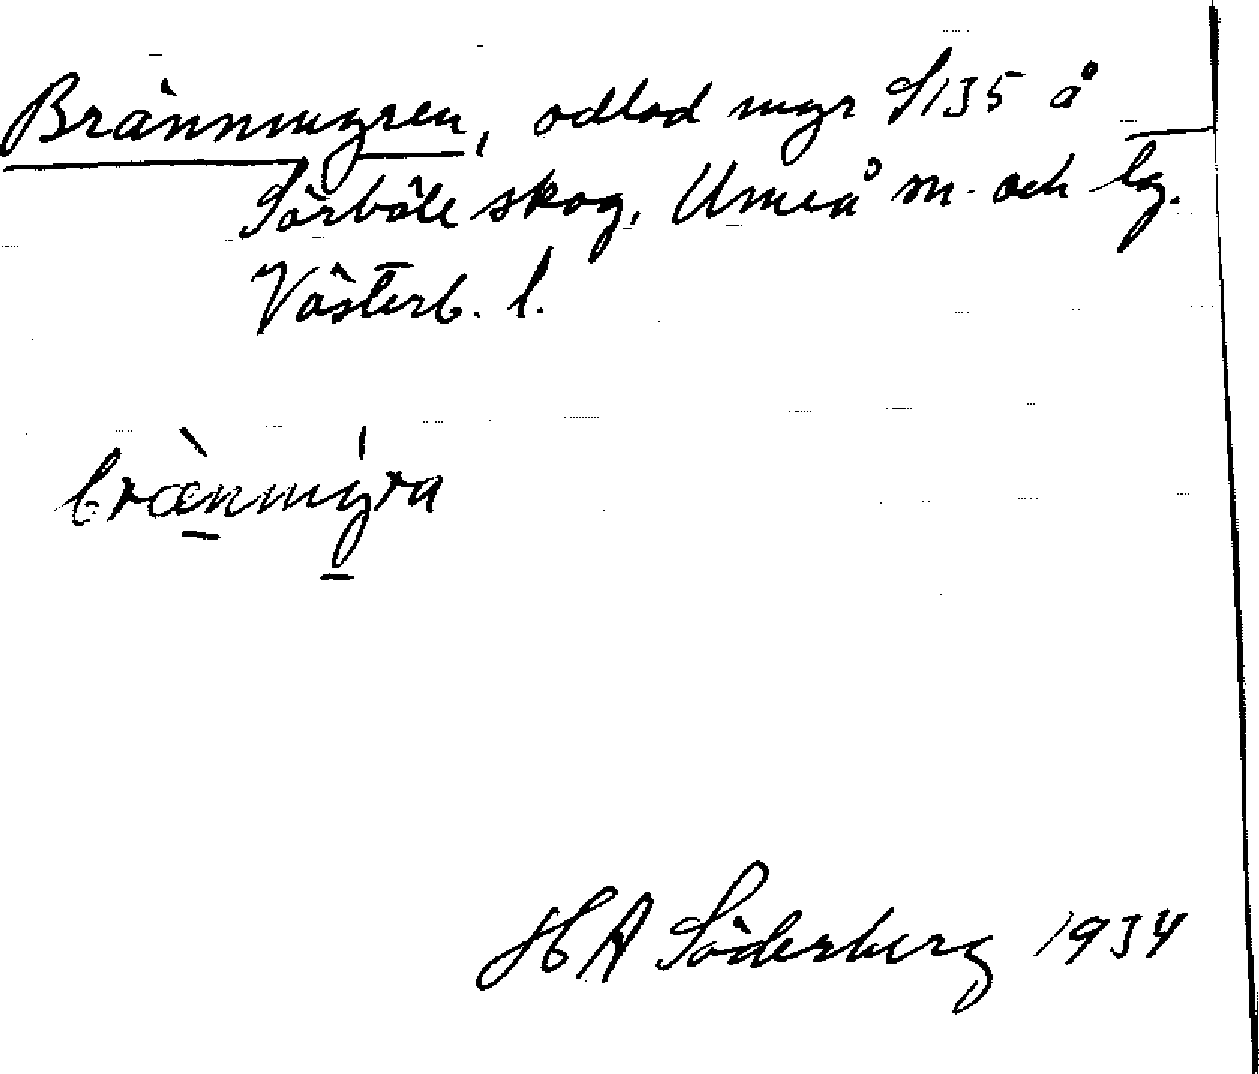 Brännmyren, odlad myr S135 å
Sörböle skog, Umeå sn. och lg.
Västerb. l.
bræ̀nmýra
H A Söderberg 1934